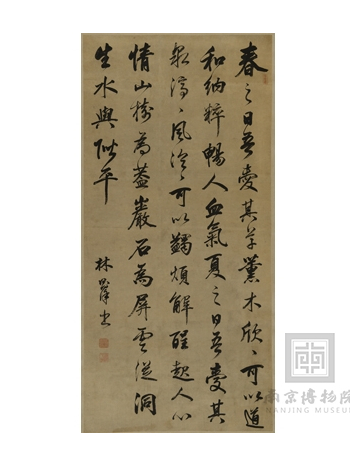 春之日吾愛其草薰木欣〻可以道
和納粹暢人血氣夏之日吾愛其
泉渟〻風泠〻可以蠲煩解酲起人心
情山樹為蓋巖石為屏雲從洞
生水與階平
林書
南京博物院
NANJING MUSEUM